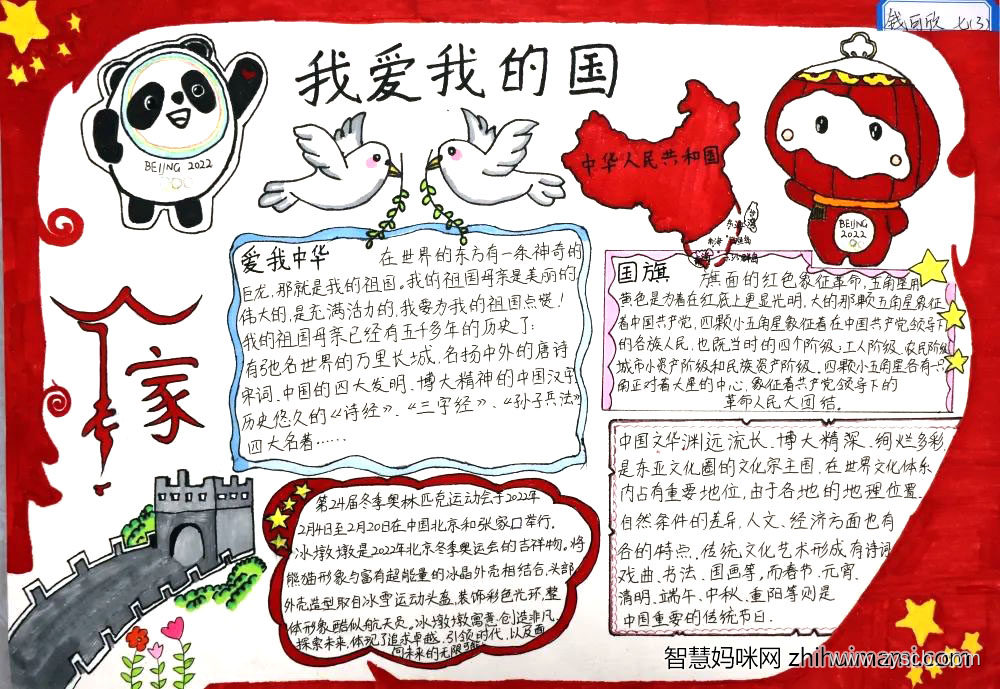 七(3)
我爱我的国
BEIJING 2022
中华人民共和国
BEIJING
2022
爱我中华
在世界的东方有一条神奇的
巨龙,那就是我的祖国。我的祖国母亲是美丽的
伟大的,是充满活力的,我要为我的祖国点赞!
我的祖国母亲已经有五千多年的历史了:
有驰名世界的万里长城,名扬中外的唐诗
宋词,中国的四大发明,博大精神的中国汉字
历史悠久的《诗经》、《三字经》、《孙子兵法》
四大名著……
国旗
旗面的红色象征革命,五角星用
黄色是为着在红底上更显光明,大的那颗五角星象征
着中国共产党,四颗小五角星象征着在中国共产党领导下
的各族人民,也既当时的四个阶级:工人阶级、农民阶级
城市小资产阶级和民族资产阶级。四颗小五角星各有一
角正对着大星的中心,象征着共产党领导下的
革命人民大团结。
家
第24届冬季奥林匹克运动会于2022年
2月4日至2月20日在中国北京和张家口举行。
冰墩墩是2022年北京冬季奥运会的吉祥物。将
熊猫形象与富有超能量的冰晶外壳相结合,头部
外壳造型取自冰雪运动头盔,装饰彩色光环,整
体形象酷似航天员。冰墩墩寓意创造非凡、
探索未来,体现了追求卓越、引领时代,以及面
向未来的无限可能。
中国文华渊远流长、博大精深、绚烂多彩,
是东亚文化圈的文化宗主国,在世界文化体系
内占有重要地位,由于各地的地理位置、
自然条件的差异,人文、经济方面也有
各的特点。传统文化艺术形成有诗词
戏曲、书法、国画等,而春节、元宵、
清明、端午、中秋、重阳等则是
中国重要的传统节日.
智慧妈咪网 zhihuimami.com